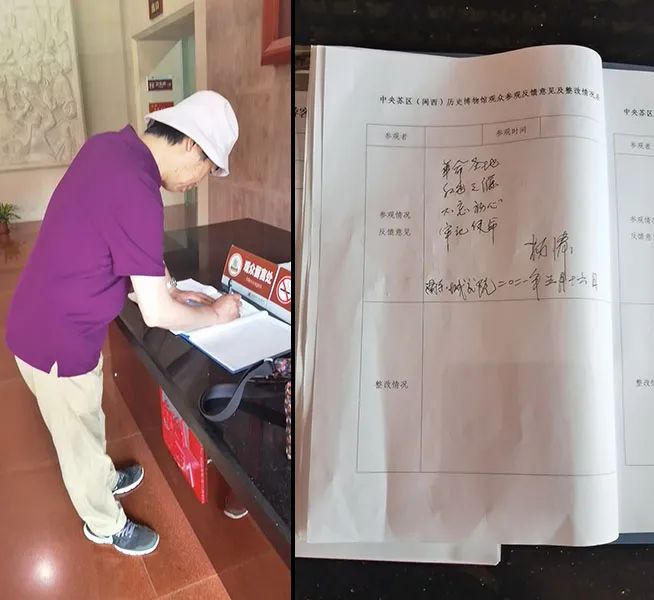 观众留言处
中央苏区（闽西）历史博物馆观众参观反馈意见及整改情况表
参观者
参观时间
参观情况
反馈意见
革命圣地
红色之源
不忘初心
牢记使命
杨涛
二〇二一年五月十六日
整改情况
中央苏区
参观者
参观情况
反馈意见
整改情况